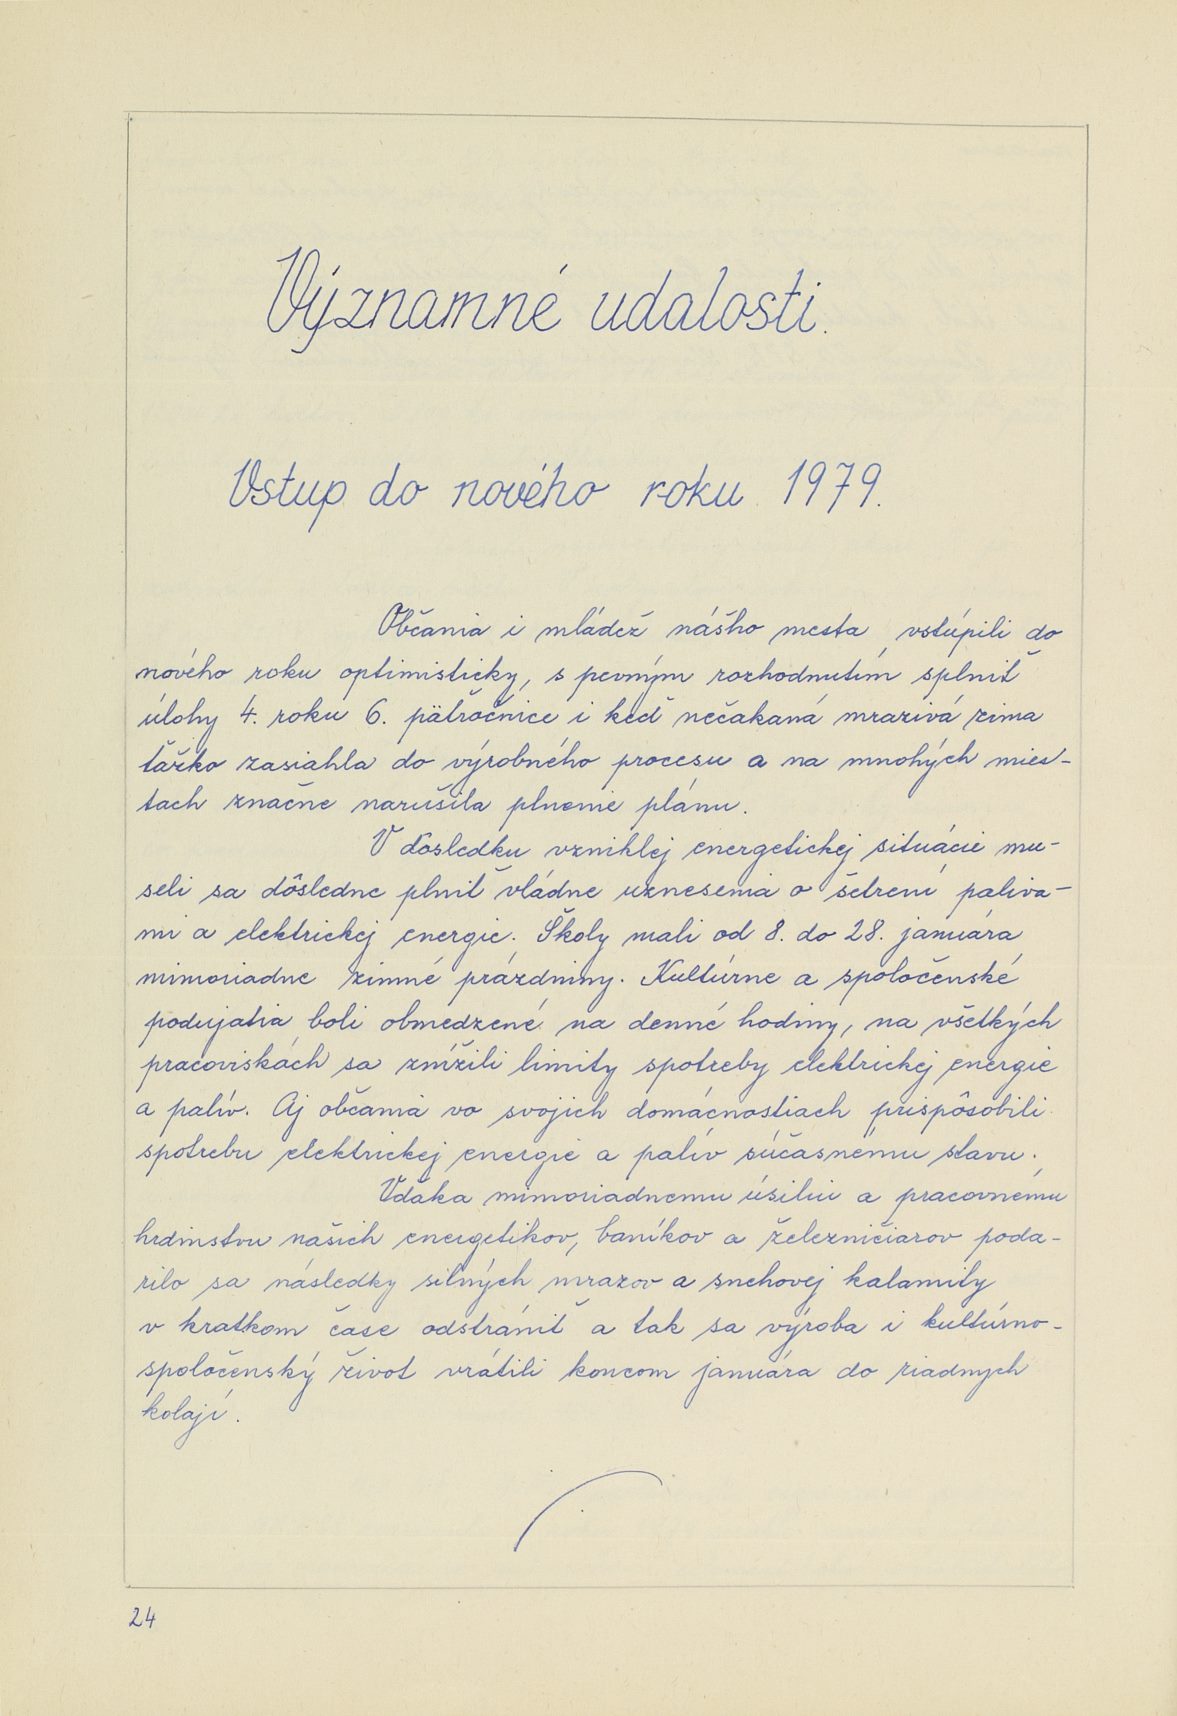 Významné udalosti.
Vstup do nového roku 1979.
Občania i mládež nášho mesta, vstúpili do
nového roku optimisticky, s pevným rozhodnutím splniť
úlohy 4. roku 6. päťročnice i keď nečakaná mrazivá zima
ťažko zasiahla do výrobného procesu a na mnohých mies-
tach značne narušila plnenie plánu.
V dôsledku vzniklej energetickej situácie mu-
seli sa dôsledne plniť vládne uznesenia o šetrení paliva-
mi a elektrickej energie. Školy mali od 8. do 28. januára
mimoriadne zimné prázdniny. Kultúrne a spoločenské
podujatia boli obmedzené na denné hodiny, na všetkých
pracoviskách sa znížili limity spotreby elektrickej energie
a palív. Aj občania vo svojich domácnostiach prispôsobili
spotrebu elektrickej energie a palív súčasnému stavu.
Vďaka mimoriadnemu úsiliu a pracovnému
hrdinstvu našich energetikov, baníkov a železničiarov poda-
rilo sa následky silných mrazov a snehovej kalamity
v krátkom čase odstrániť a tak sa výroba i kultúrno-
spoločenský život vrátili koncom januára do riadnych
kolají.
24